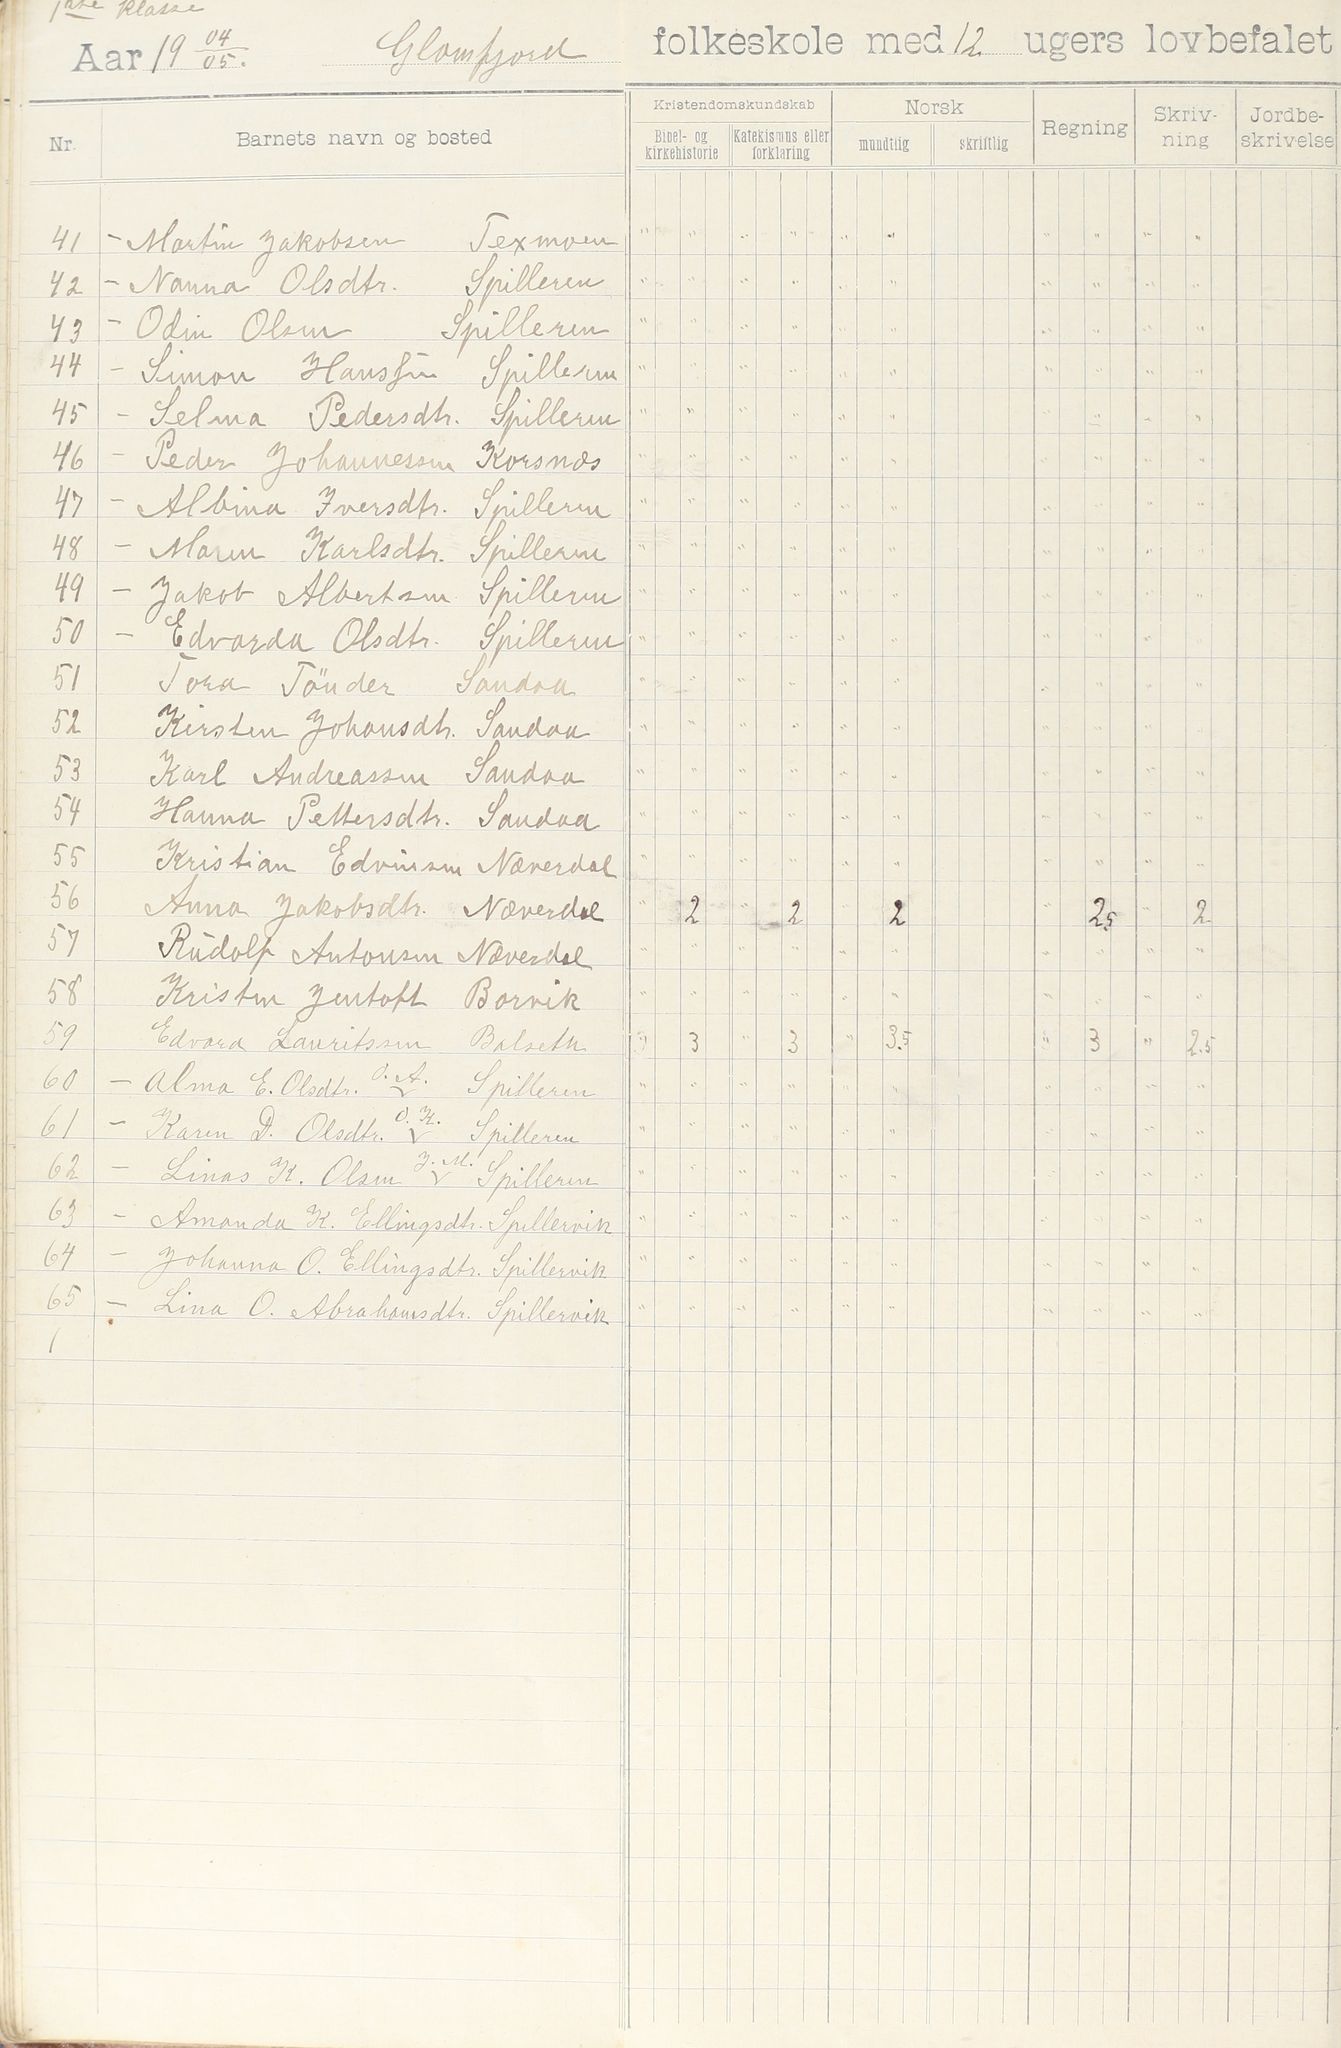 1ste klasse
Aar 19 04/05. Glomfjord folkeskole med 12 ugers lovbefalet
Nr. Barnets navn og bosted Kristendomskundskab Norsk Regning Skriv-ning Jordbe-skrivelse
Bibel- og kirkehistorie Katekismus eller forklaring mundtlig skriftlig
41 - Martin Jakobsen Texmoen " " " " " " " " " "
42 - Nanna Olsdtr. Spilleren " " " " " " " " " "
43 - Odin Olsen Spilleren " " " " " " " " " "
44 - Simon Hanssen Spilleren " " " " " " " " " "
45 - Selma Pedersdtr. Spilleren " " " " " " " " " "
46 - Peder Johannessen Korsnæs " " " " " " " " " "
47 - Albina Iversdtr. Spilleren " " " " " " " " " "
48 - Maren Karlsdtr. Spilleren " " " " " " " " " "
49 - Jakob Albertsen Spilleren " " " " " " " " " "
50 - Edvarda Olsdtr. Spilleren " " " " " " " " " "
51 Tora Tönder Sandaa " " " " " " " " " "
52 Kirsten Johansdtr. Sandaa " " " " " " " " " "
53 Karl Andreassen Sandaa " " " " " " " " " "
54 Hanna Pettersdtr. Sandaa " " " " " " " " " "
55 Kristian Edvinsen Næverdal " " " " " " " " " "
56 Anna Jakobsdtr. Næverdal " 2 " 2 " 2 " 2,5 " 2
57 Rudolf Antonsen Næverdal " " " " " " " " " "
58 Kristen Jentoft Borvik " " " " " " " " " "
59 Edvard Lauritssen Balseth 3 " 3 " 3.5 " 3 " 2.5
60 - Alma E. Olsdtr. O. A. Spilleren " " " " " " " " " "
61 - Karen D. Olsdtr. O. K. Spilleren " " " " " " " " " "
62 - Linas K. Olsen J. M. Spilleren " " " " " " " " " "
63 - Amanda K. Ellingsdtr. Spillervik " " " " " " " " " "
64 - Johanna O. Ellingsdtr. Spillervik " " " " " " " " " "
65 - Lina O. Abrahamsdtr. Spillervik " " " " " " " " " "
1